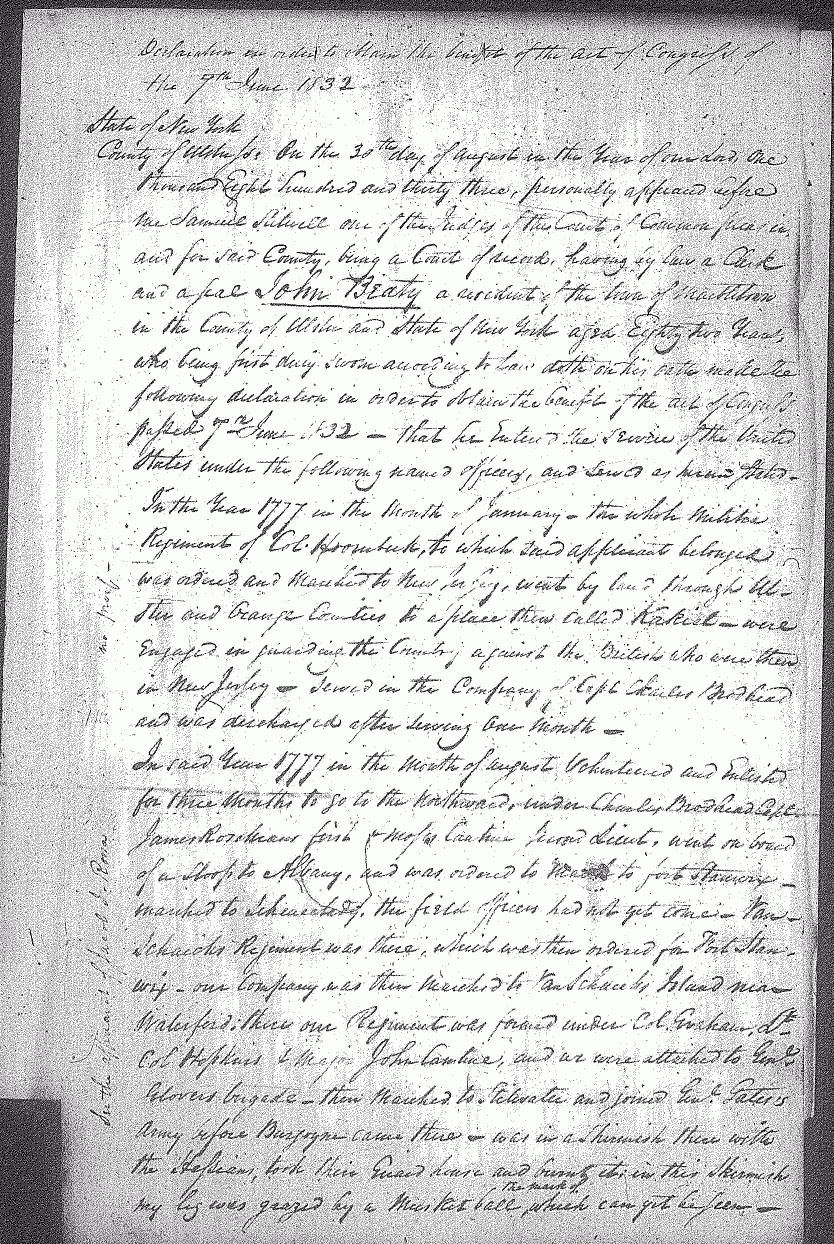 Declaration in order to obtain the benefit of the act of Congress of
the 7th June 1832
State of New York
County of Ulster ss: On the 30th day of August in the Year of our Lord, One
thousand Eight hundred and thirty three, personally appeared before
me Samuel Stilwell one of the Judges of the Court of Common pleas in
and for said County, being a Court of record, having by law a Clerk
and a seal John Beaty a resident of the town of Marbletown
in the County of Ulster and State of New York aged Eighty two Years,
who being first duly sworn according to Law doth on his oath make the
following declaration in order to obtain the benefit of the act of Congress
passed 7th June 1832 — that he Entered the Service of the United
States under the following named officers, and served as herein stated—
In the Year 1777 in the Month of January — the whole Militia
Regiment of Col. Hoornbeek, to which said applicant belonged
was ordered and Marched to New Jersey, went by land through Ul-
ster and Orange Counties to a place then called Kakiat — were
Engaged in guarding the Country against the British who were then
in New Jersey — Served in the Company of Capt Charles Brodhead
and was discharged after serving One Month —
In said Year 1777 in the Month of August Volunteered and Enlisted
for three Months to go to the Northward, under Charles Brodhead Capt
James Rosekrans first & Moses Cantine Second Lieut, went on board
of a Sloop to Albany, and was ordered to March to fort Stanwix —
marched to Schenectady, the field Officers had not yet come — Van-
Schaicks Regiment was there, which was then ordered for Fort Stan-
wix — our Company was then Marched to Van Schaicks Island near
Waterford; there our Regiment was formed under Col. Graham, Lt
Col Hopkins & Major John Cantine, and we were attached to Genl
Glovers brigade — then Marched to Stilwater and joined Genl Gates's
Army before Burgoyne came there — was in a Skirmish there with
the Hessians, took their Guard house and burnt it; in this Skirmish
my leg was grazed by a Musket ball the mark of which can yet be seen —
no proof —
In the affidavit of Jacob